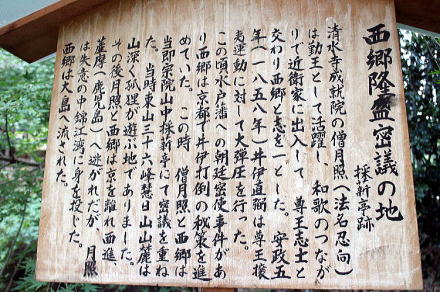 西郷隆盛密議の地
採新亭跡
清水寺成就院の僧月照（法名忍向）
は勤王として活躍し、和歌のつなが
りで近衛家に出入して、尊王志士と
交わり西郷と志を一とした。安政五
年（一八五八年）井伊直弼は尊王攘
夷運動に対して大弾圧を行った。
この頃水戸藩への朝廷密使事件があ
り西郷は京都で井伊打倒の秘策を進
めていた。この時、僧月照と西郷は
当即宗院山中採新亭にて密議を重ね
た。当時東山三十六峰慧日山山麓は
山深く狐狸が遊ぶ地でありました。
その後月照と西郷は京を離れ西進、
薩摩（鹿児島）へ逃がれたが、月照
は失意の中錦江湾に身を投じた。
西郷は大島へ流された。